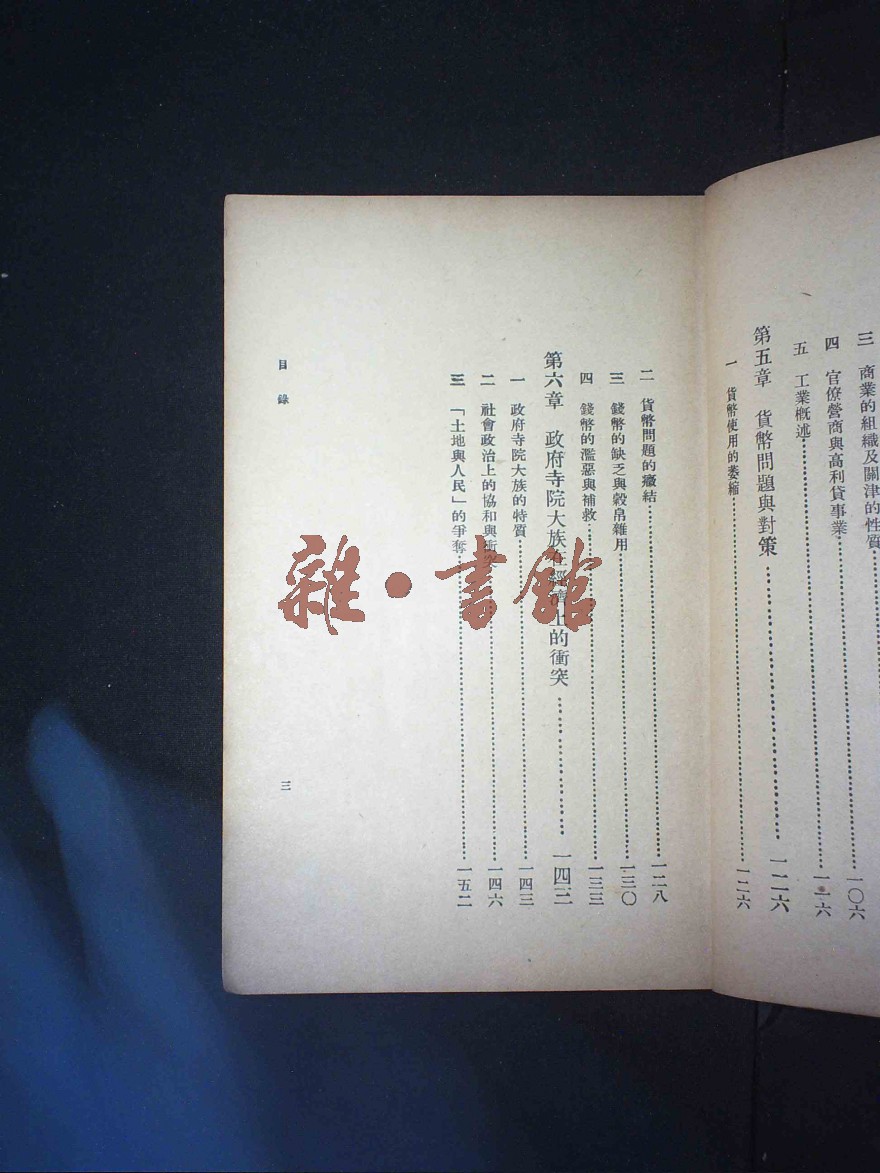 三　商業的組織及關津的性質……一〇六
四　官僚營商與高利貸事業……一一六
五　工業概述
第五章　貨幣問題與對策……一二六
一　貨幣使用的萎縮……一二六
二　貨幣問題的癥結……一二八
三　錢幣的缺乏與穀帛雜用……一三〇
四　錢幣的濫惡與補救……一三三
第六章　政府寺院大族在經濟上的衝突……一四三
一　政府寺院大族的特質……一四三
二　社會政治上的協和與衝突……一四六
三　「土地與人民」的爭奪……一五二
目錄
三
雜·書館